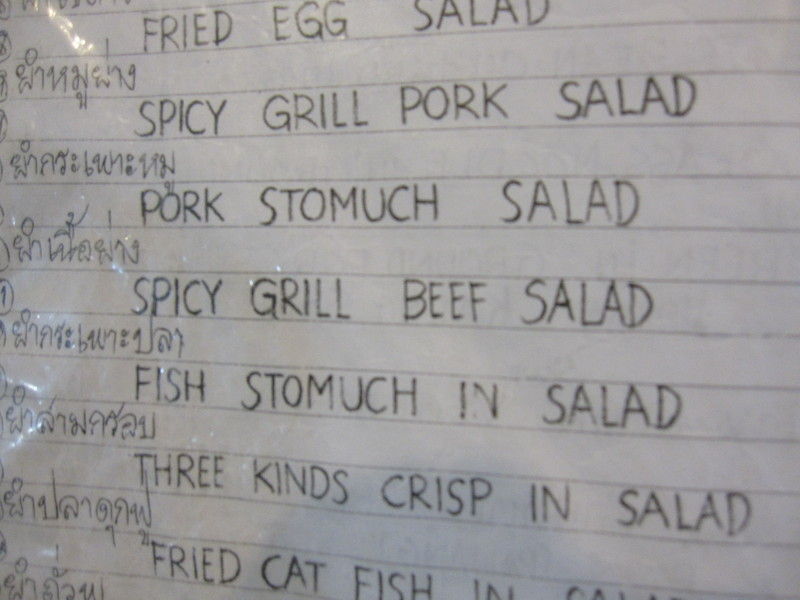 FRIED EGG SALAD
ยำหมูย่าง
SPICY GRILL PORK SALAD
ยำกระเพาะหมู
PORK STOMUCH SALAD
ยำเนื้อย่าง
SPICY GRILL BEEF SALAD
ยำกระเพาะปลา
FISH STOMUCH IN SALAD
ยำสามกรอบ
THREE KINDS CRISP IN SALAD
ยำปลาดุกฟู
FRIED CAT FISH IN SALAD